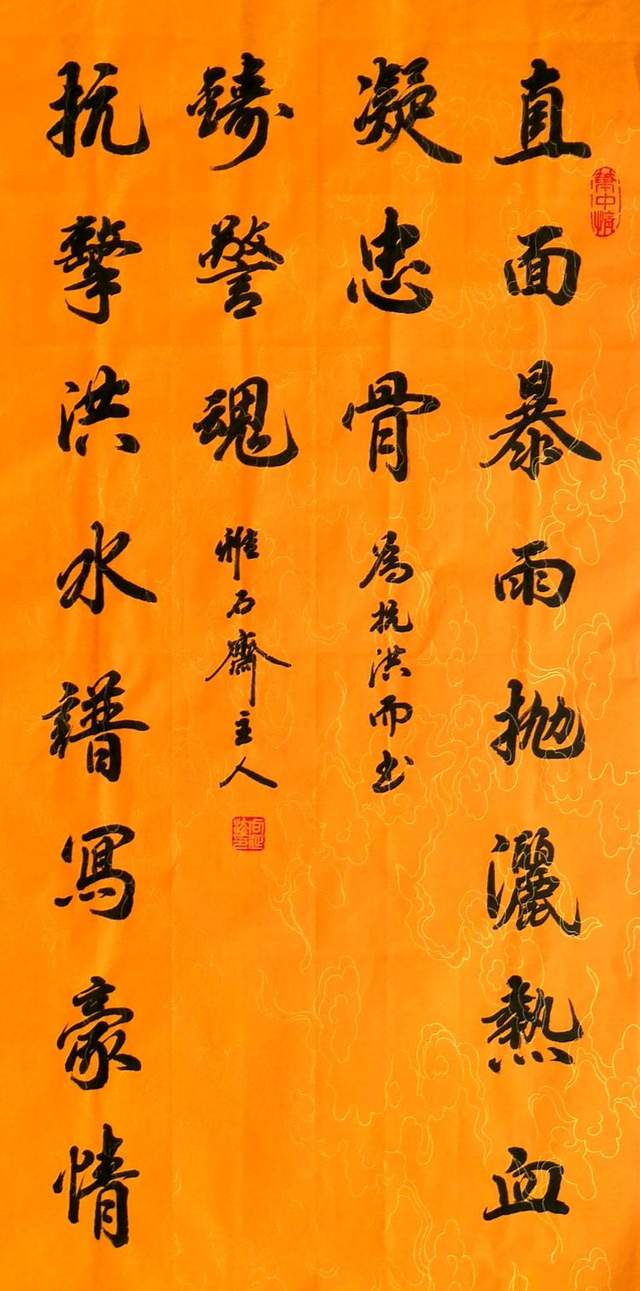 直面暴雨抛灑熱血
凝忠骨
為抗洪而書
抗擊洪水譜寫豪情
鑄警魂
雅石齋主人